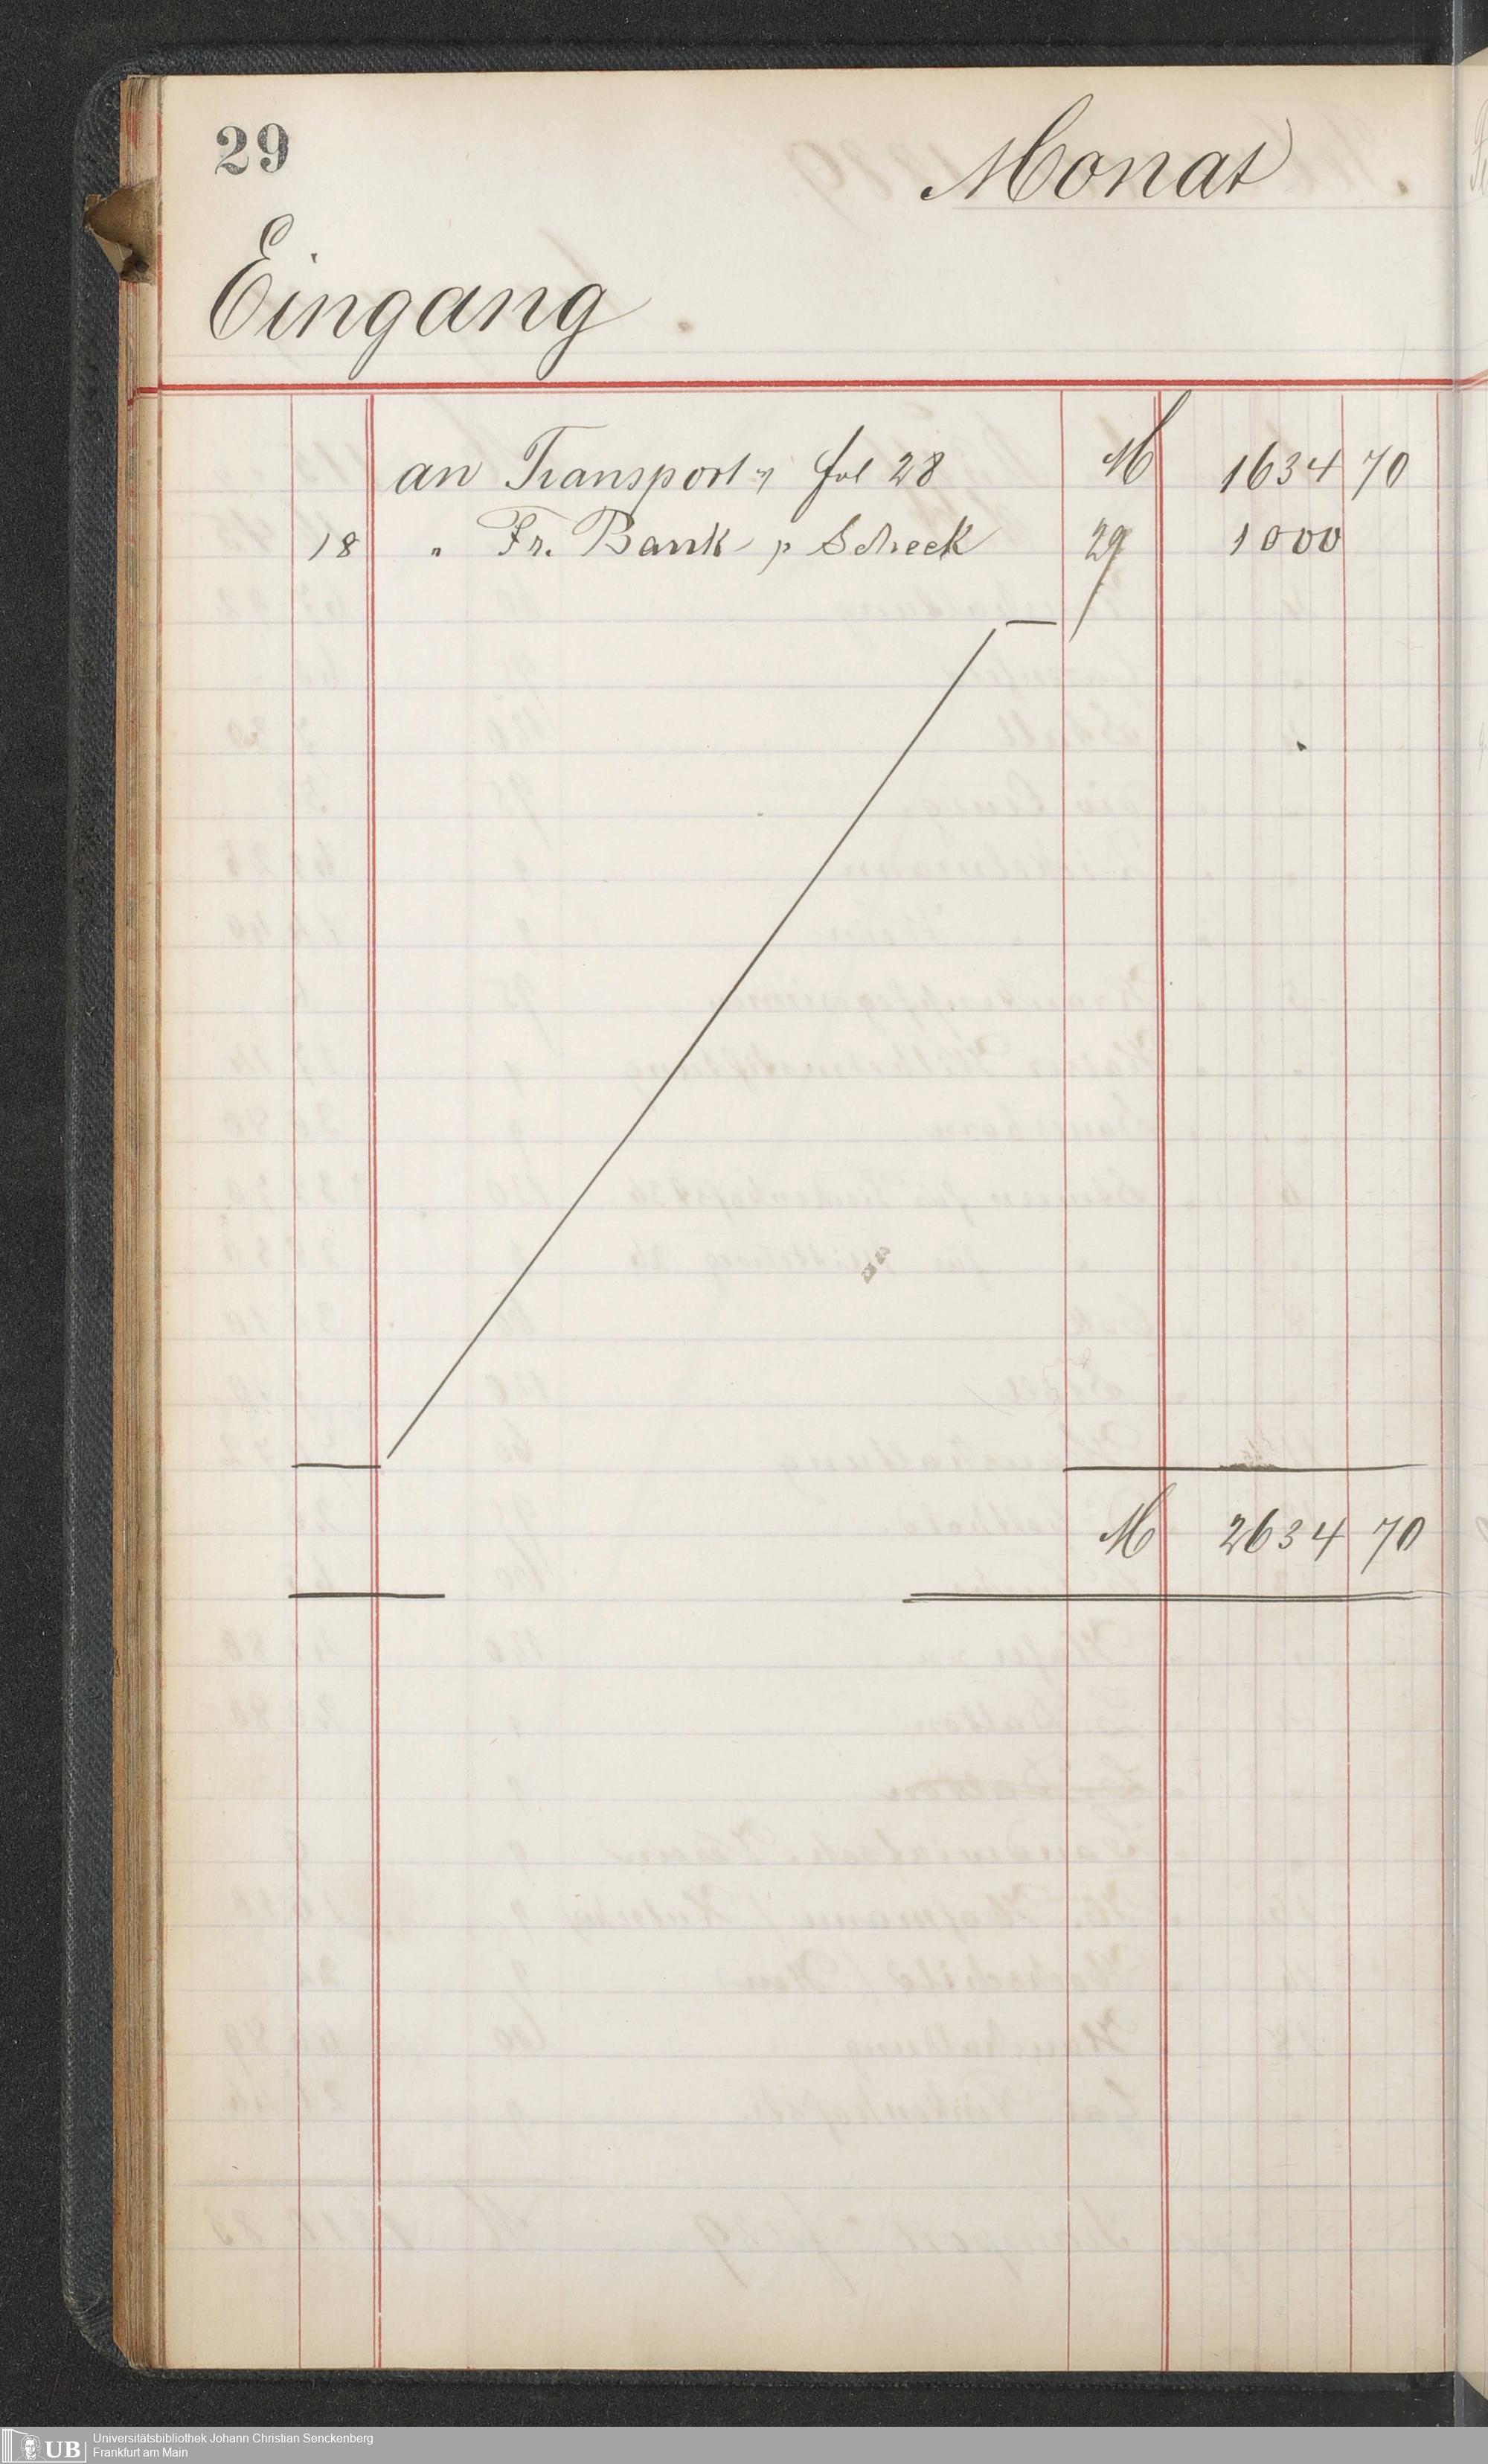 29
Monat
Eingang.
an Transport v fol 28 M 1634 70
18 " Fr. Bank p Scheck 29 1000
M 2634 70
UB
Universitätsbibliothek Johann Christian Senckenberg
Frankfurt am Main